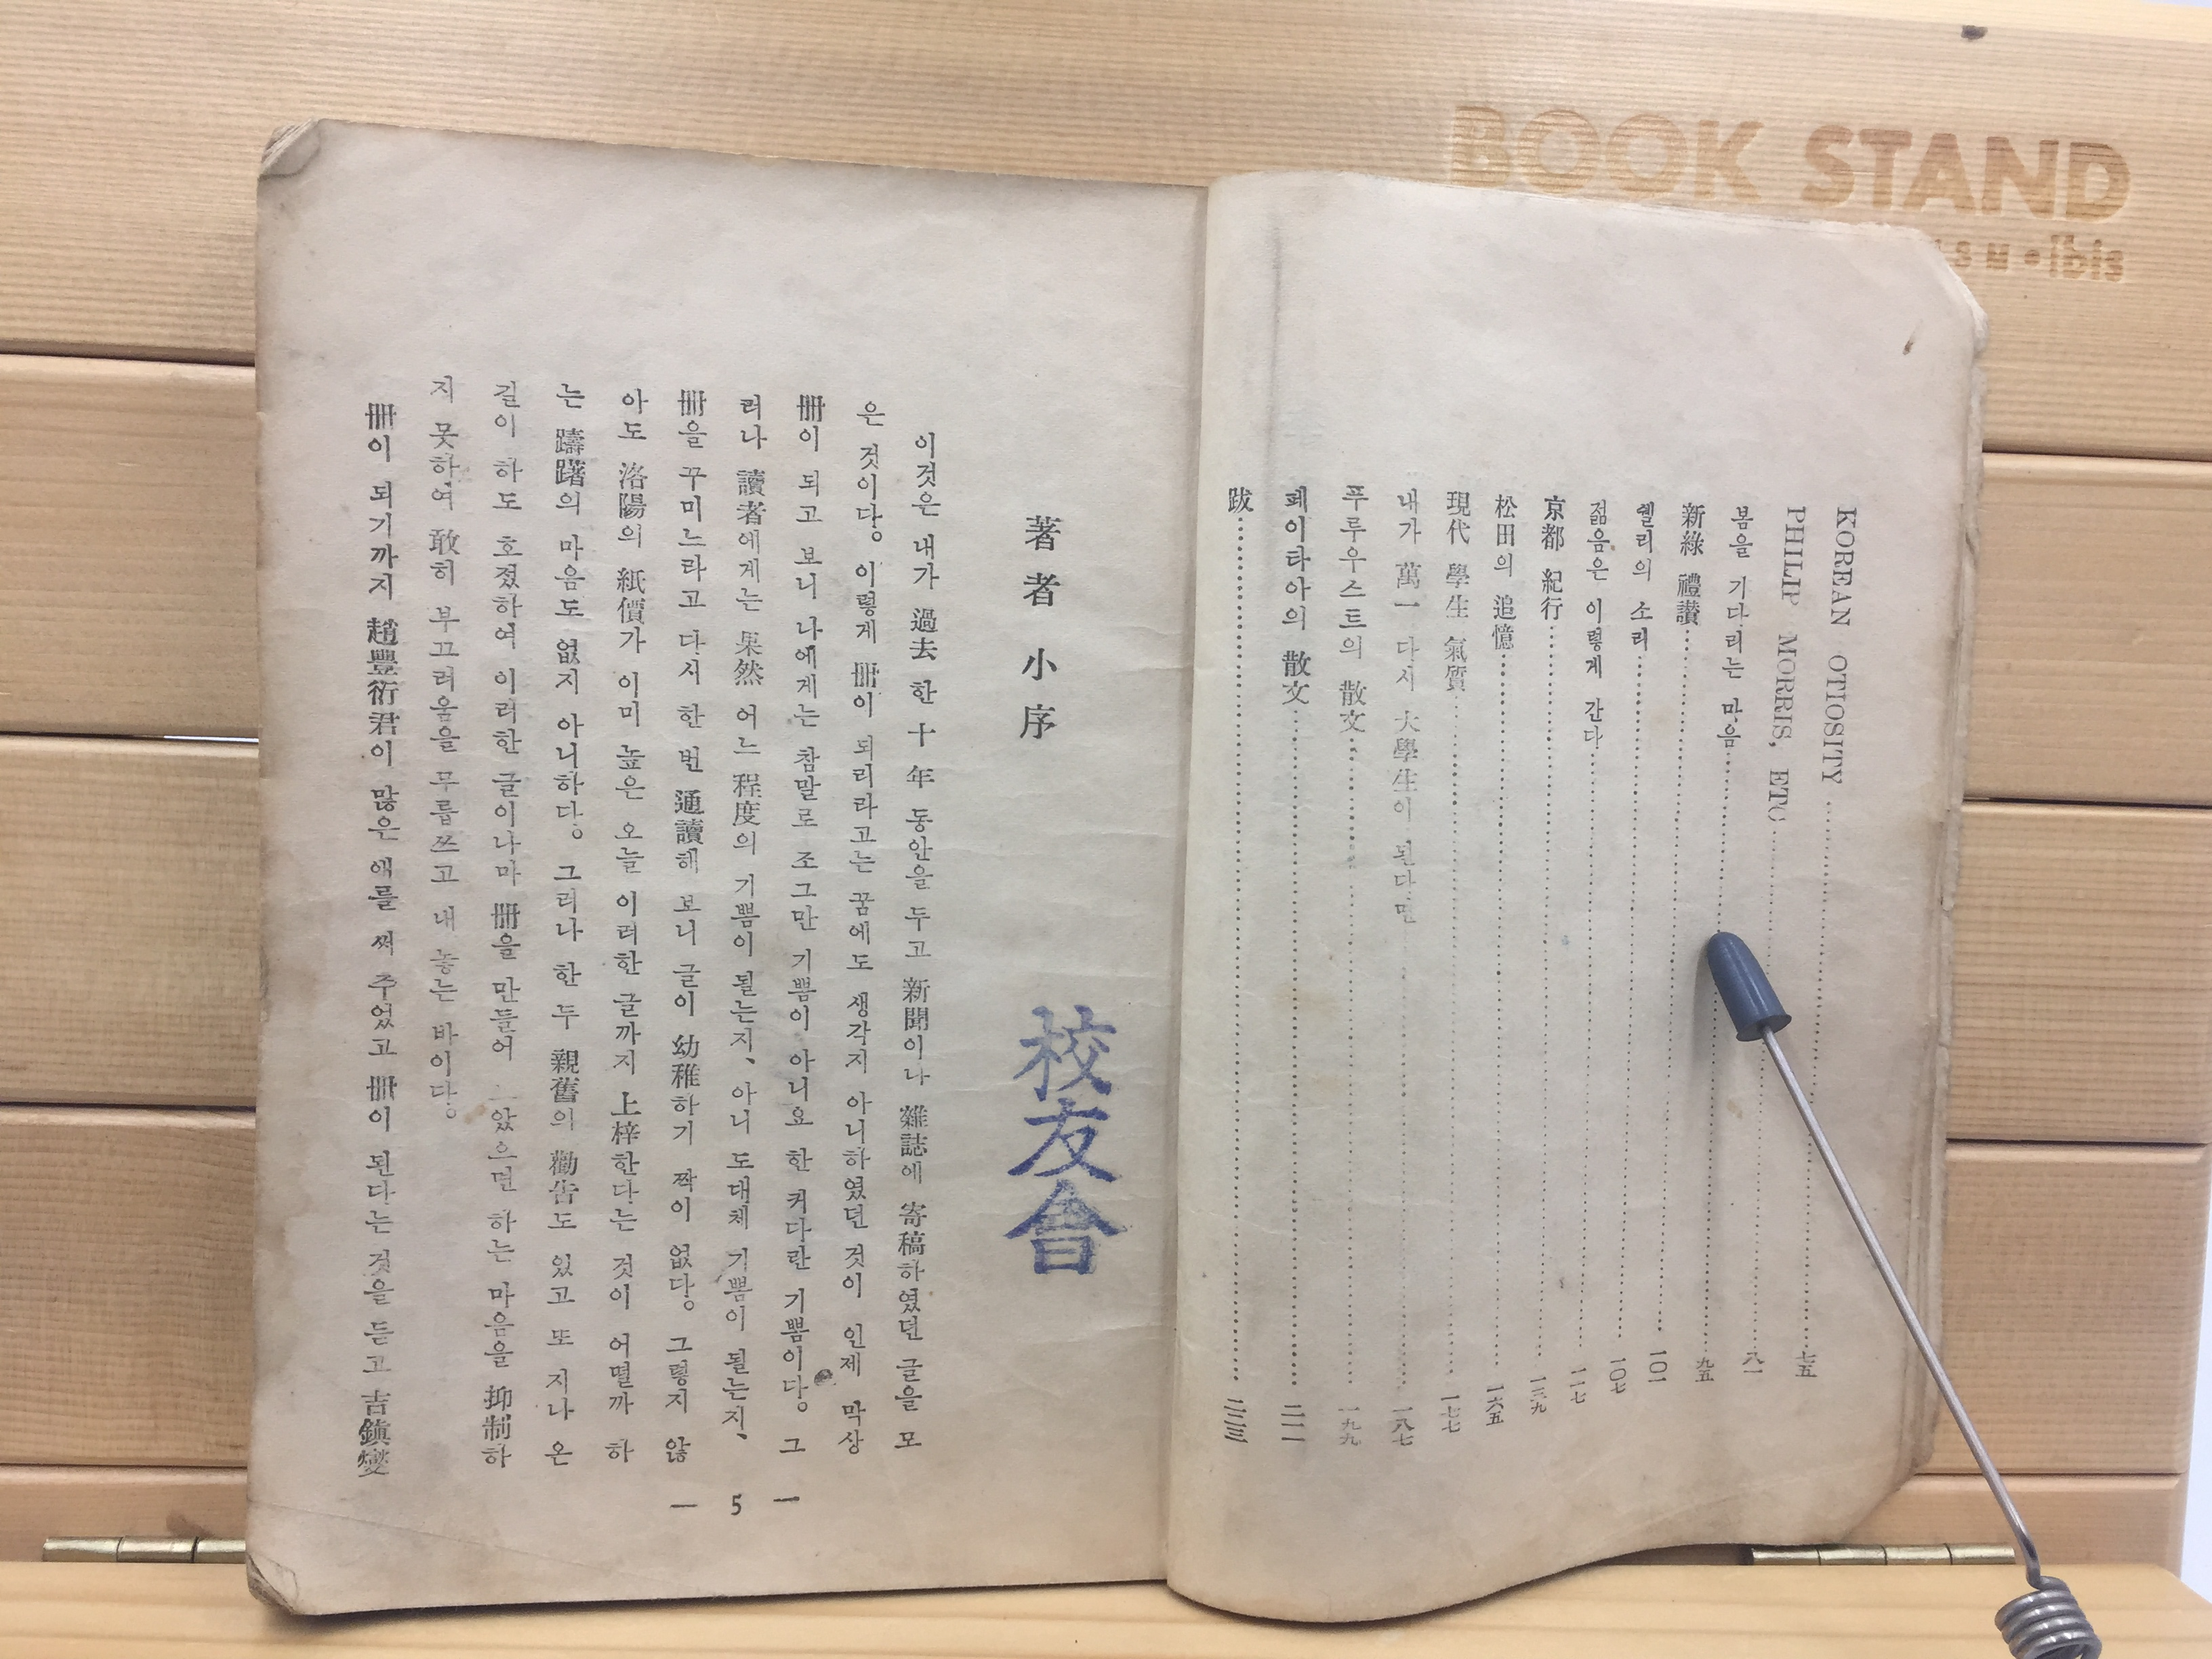 BOOK STAND
ibis
KOREAN OTIOSITY……七五
PHILIP MORRIS, ETC……八一
봄을 기다리는 마음……九五
新綠 禮讃……一〇一
쉘리의 소리……一〇七
젊음은 이렇게 간다……一一七
京都 紀行……一三九
松田의 追憶……一六五
現代 學生 氣質……一七七
내가 萬一 다시 大學生이 된다면……一八七
푸루우스트의 散文……一九九
페이타아의 散文……二一一
跋……二三三
著者小序
校友會
이것은 내가 過去 한 十年 동안을 두고 新聞이나 雜誌에 寄稿하였던 글을 모
은 것이다。 이렇게 冊이 되리라고는 꿈에도 생각지 아니하였던 것이 인제 막상
冊이 되고 보니 나에게는 참말로 조그만 기쁨이 아니요 한 커다란 기쁨이다。 그
러나 讀者에게는 果然 어느 程度의 기쁨이 될는지、 아니 도대체 기쁨이 될는지、
冊을 꾸미느라고 다시 한 번 通讀해 보니 글이 幼稚하기 짝이 없다。 그렇지 않
아도 洛陽의 紙價가 이미 높은 오늘 이러한 글까지 上梓한다는 것이 어떨까 하
는 躊躇의 마음도 없지 아니하다。 그러나 한 두 親舊의 勸告도 있고 또 지나 온
길이 하도 호젔하여 이러한 글이나마 冊을 만들어 았으면 하는 마음을 抑制하
지 못하여 敢히 부끄러움을 무릅쓰고 내 놓는 바이다。
冊이 되기까지 趙豐衍君이 많은 애를 써 주었고 冊이 된다는 것을 듣고 吉鎭燮
— 5 —